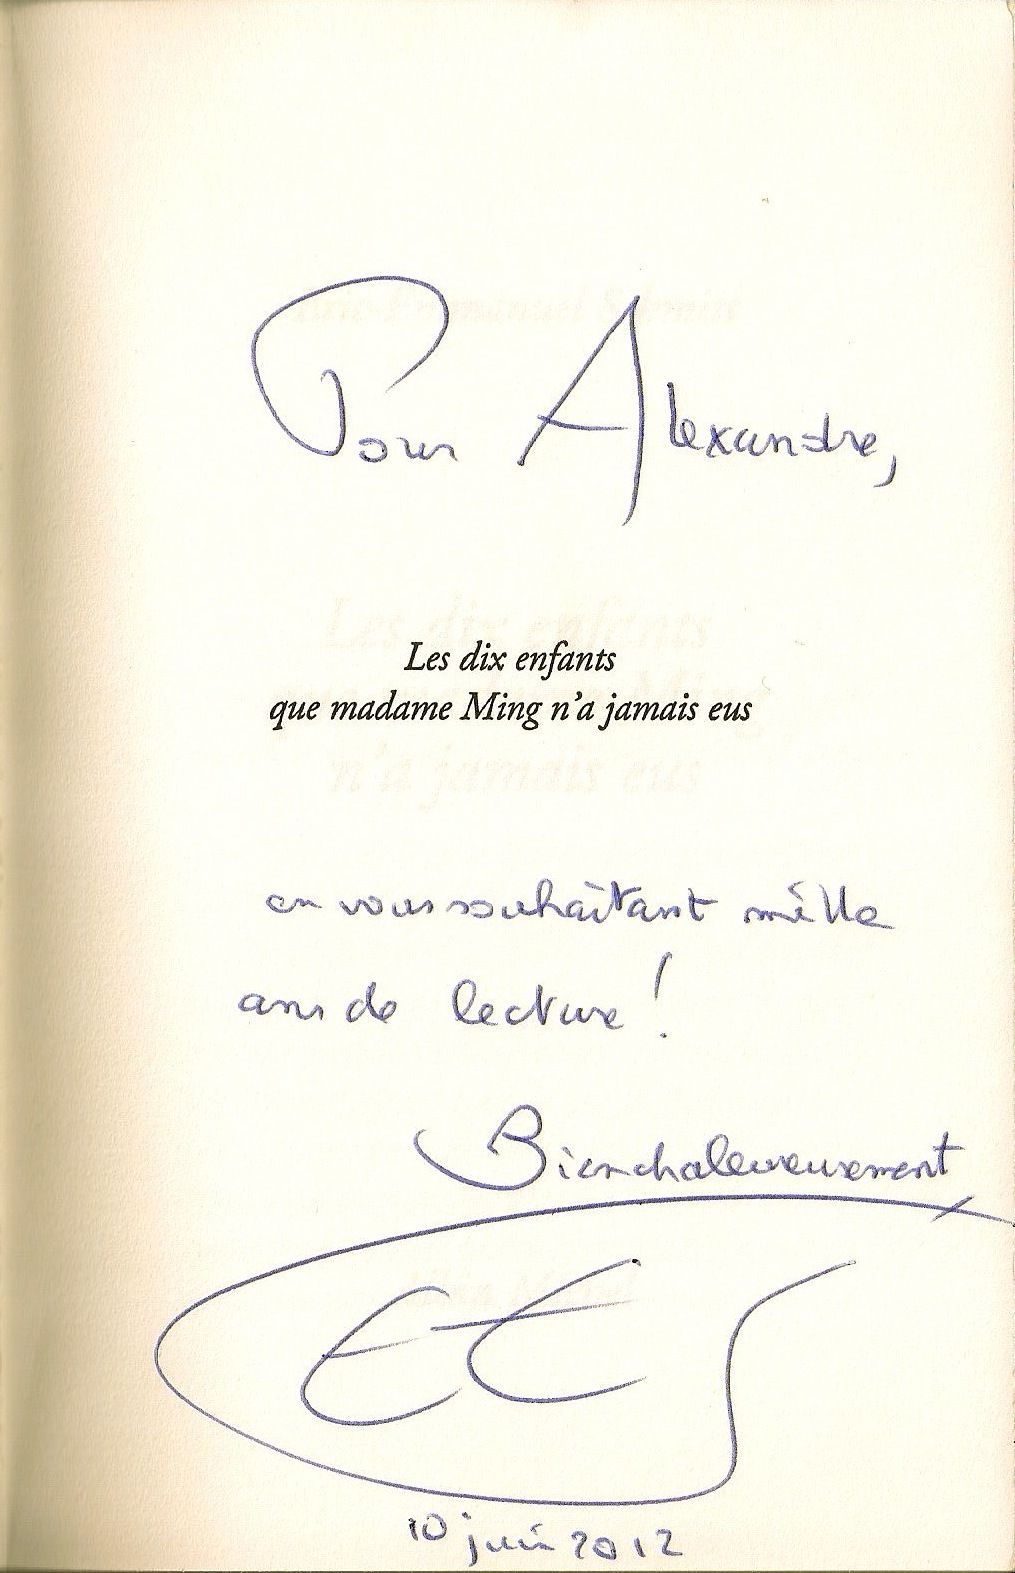 Pour Alexandre,
Les dix enfants
que madame Ming n'a jamais eus
en vous souhaitant mille
ans de lecture !
Bien chaleureusement
EES
10 juin 2012